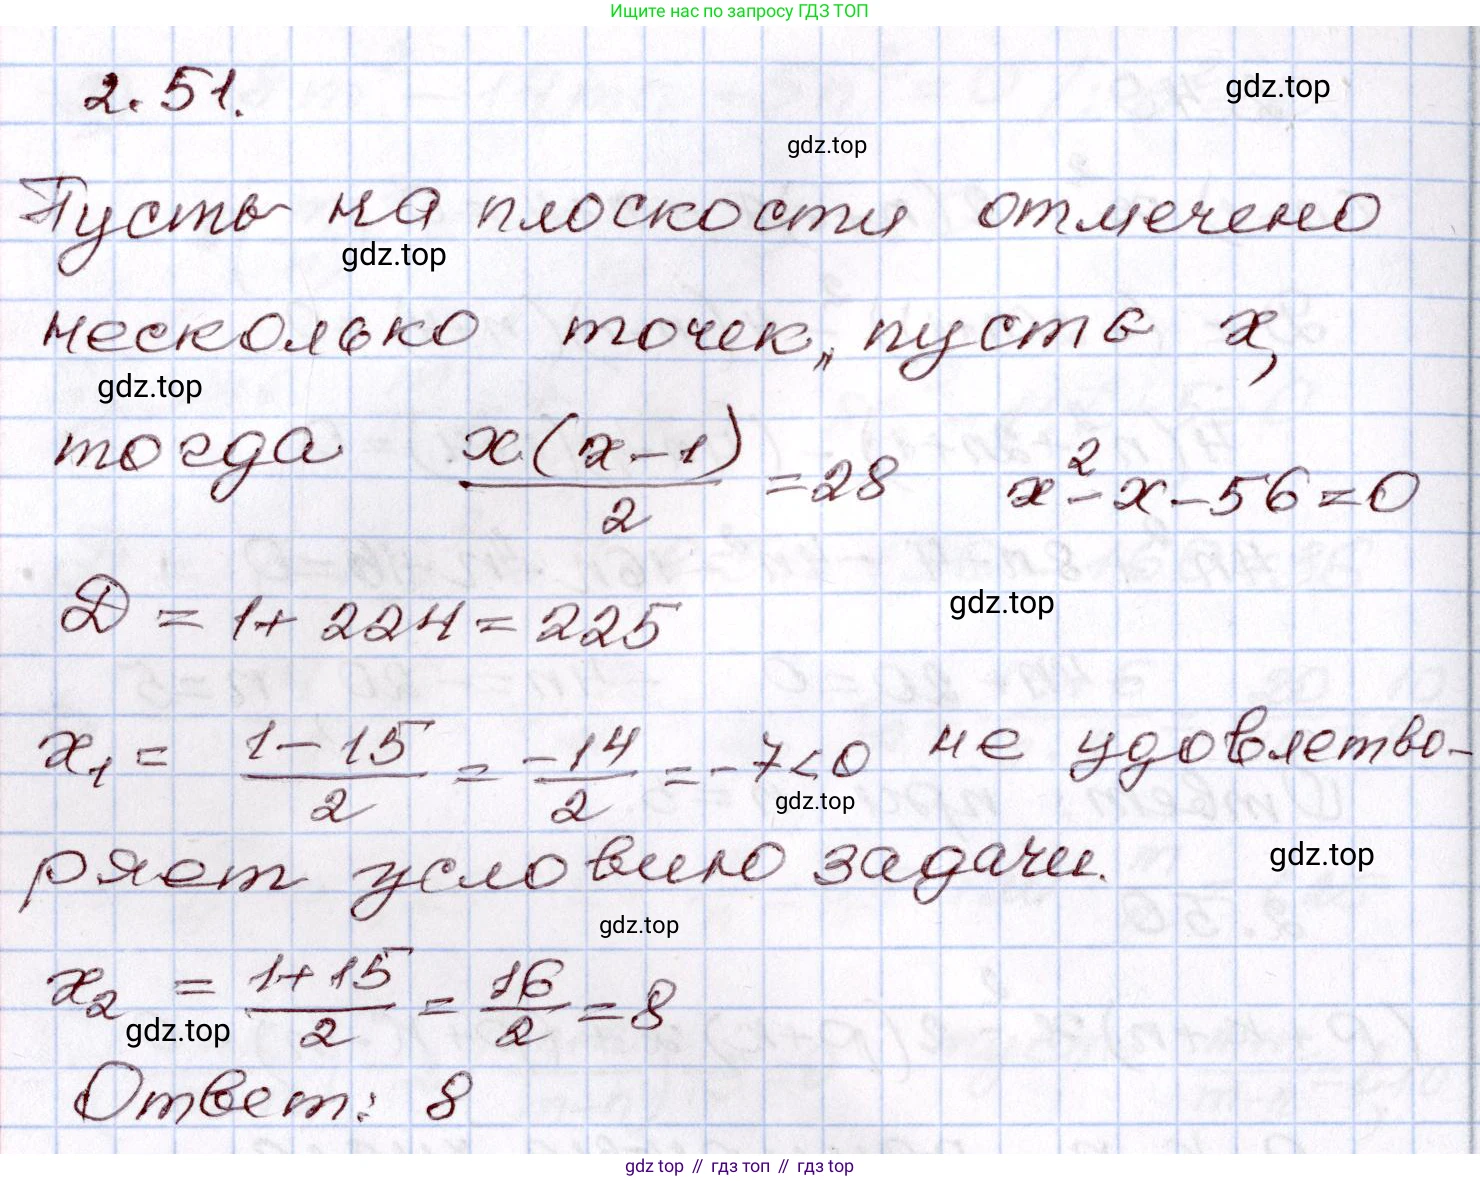 Ищите нас по запросу ГДЗ ТОП
2.51.
gdz.top
gdz.top
Пусть на плоскости отмечено
gdz.top
несколько точек, пусть x,
gdz.top
тогда x(x-1)/2 = 28 x²-x-56=0
Д = 1+224=225
gdz.top
x₁ = (1-15)/2 = -14/2 = -7<0 не удовлетво-
gdz.top
ряет условию задачи.
gdz.top
gdz.top
x₂ = (1+15)/2 = 16/2 = 8
gdz.top
Ответ: 8
gdz top // гдз топ // гдз top